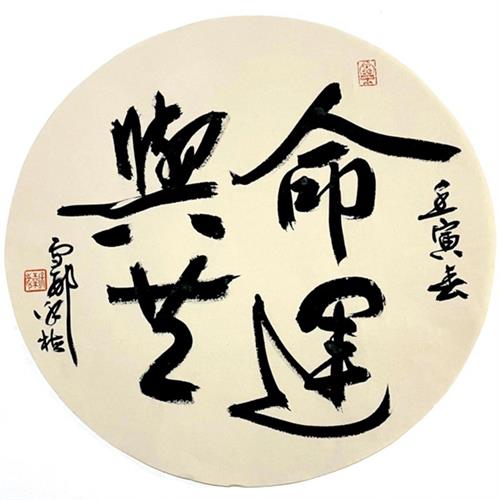 壬寅春
命運
與共